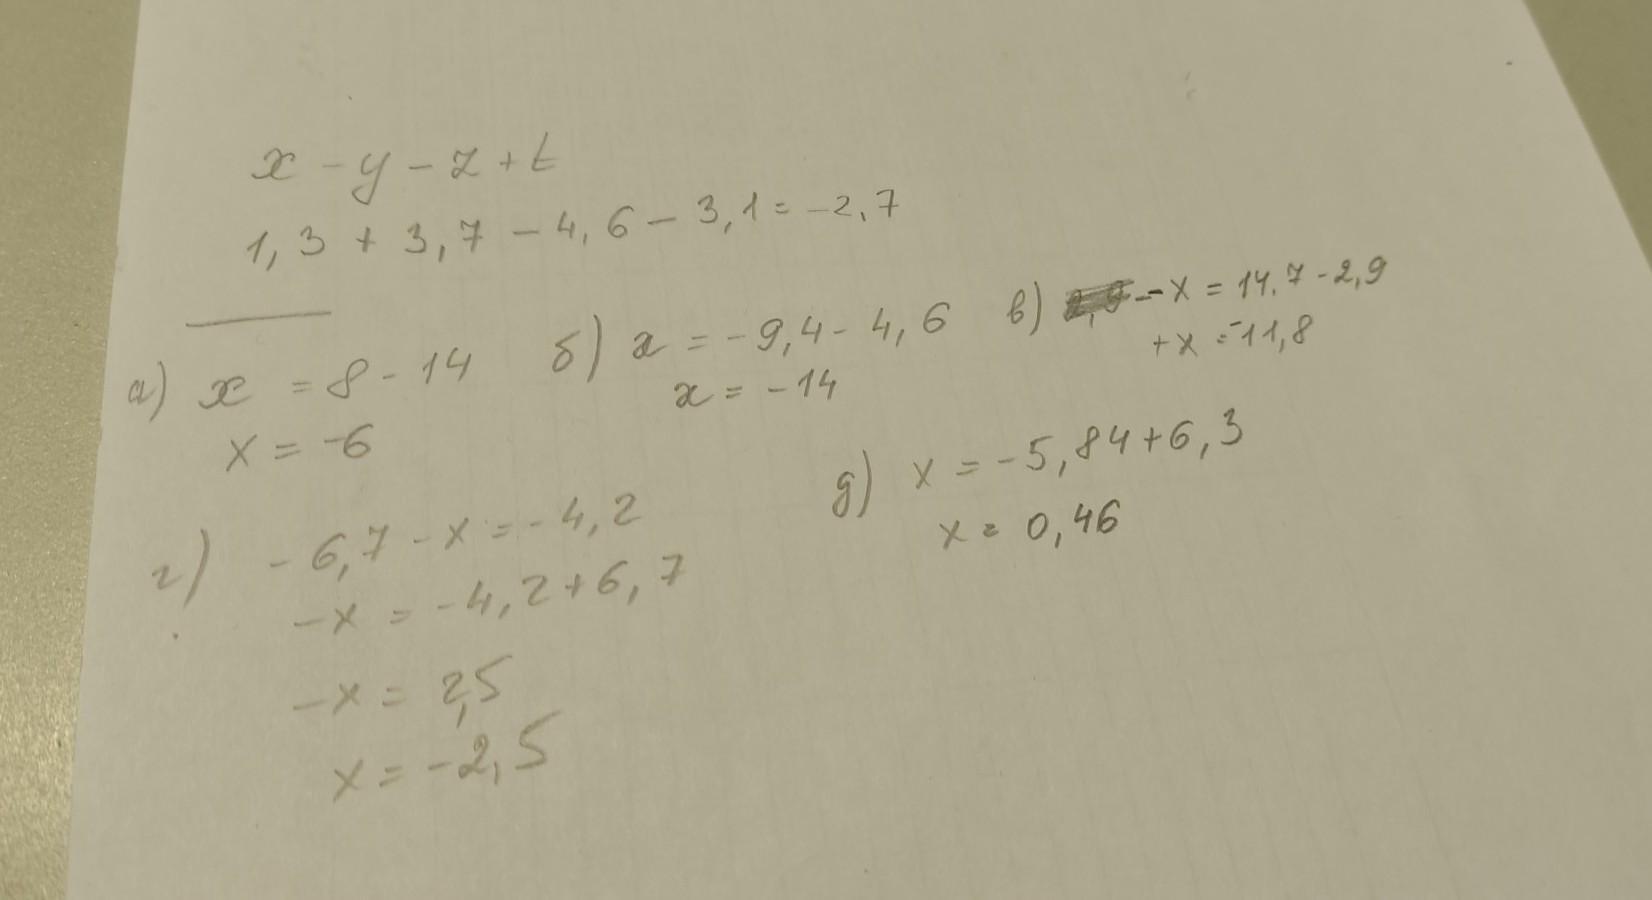 x - y - z + t
1,3 + 3,7 - 4,6 - 3,1 = -2,7
а) x = 8 - 14
x = -6
б) x = -9,4 - 4,6
x = -14
в) - x = 14,7 - 2,9
+ x = -11,8
г) - 6,7 - x = - 4,2
- x = - 4,2 + 6,7
- x = 2,5
x = - 2,5
д) x = - 5,84 + 6,3
x = 0,46